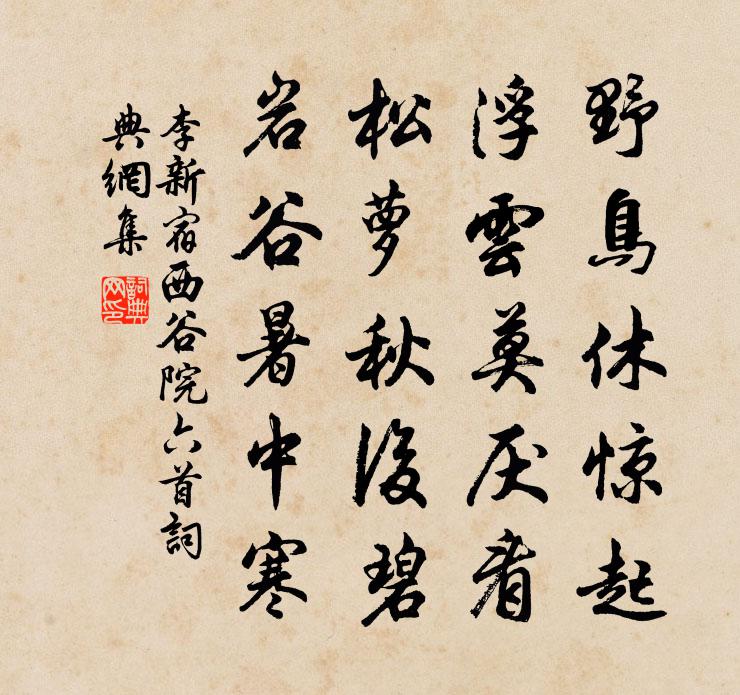 野鳥休惊起
浮雲莫厌看
松萝秋後碧
岩谷暑中寒
李新宿西谷院六首詞
典網集
詞典
网印